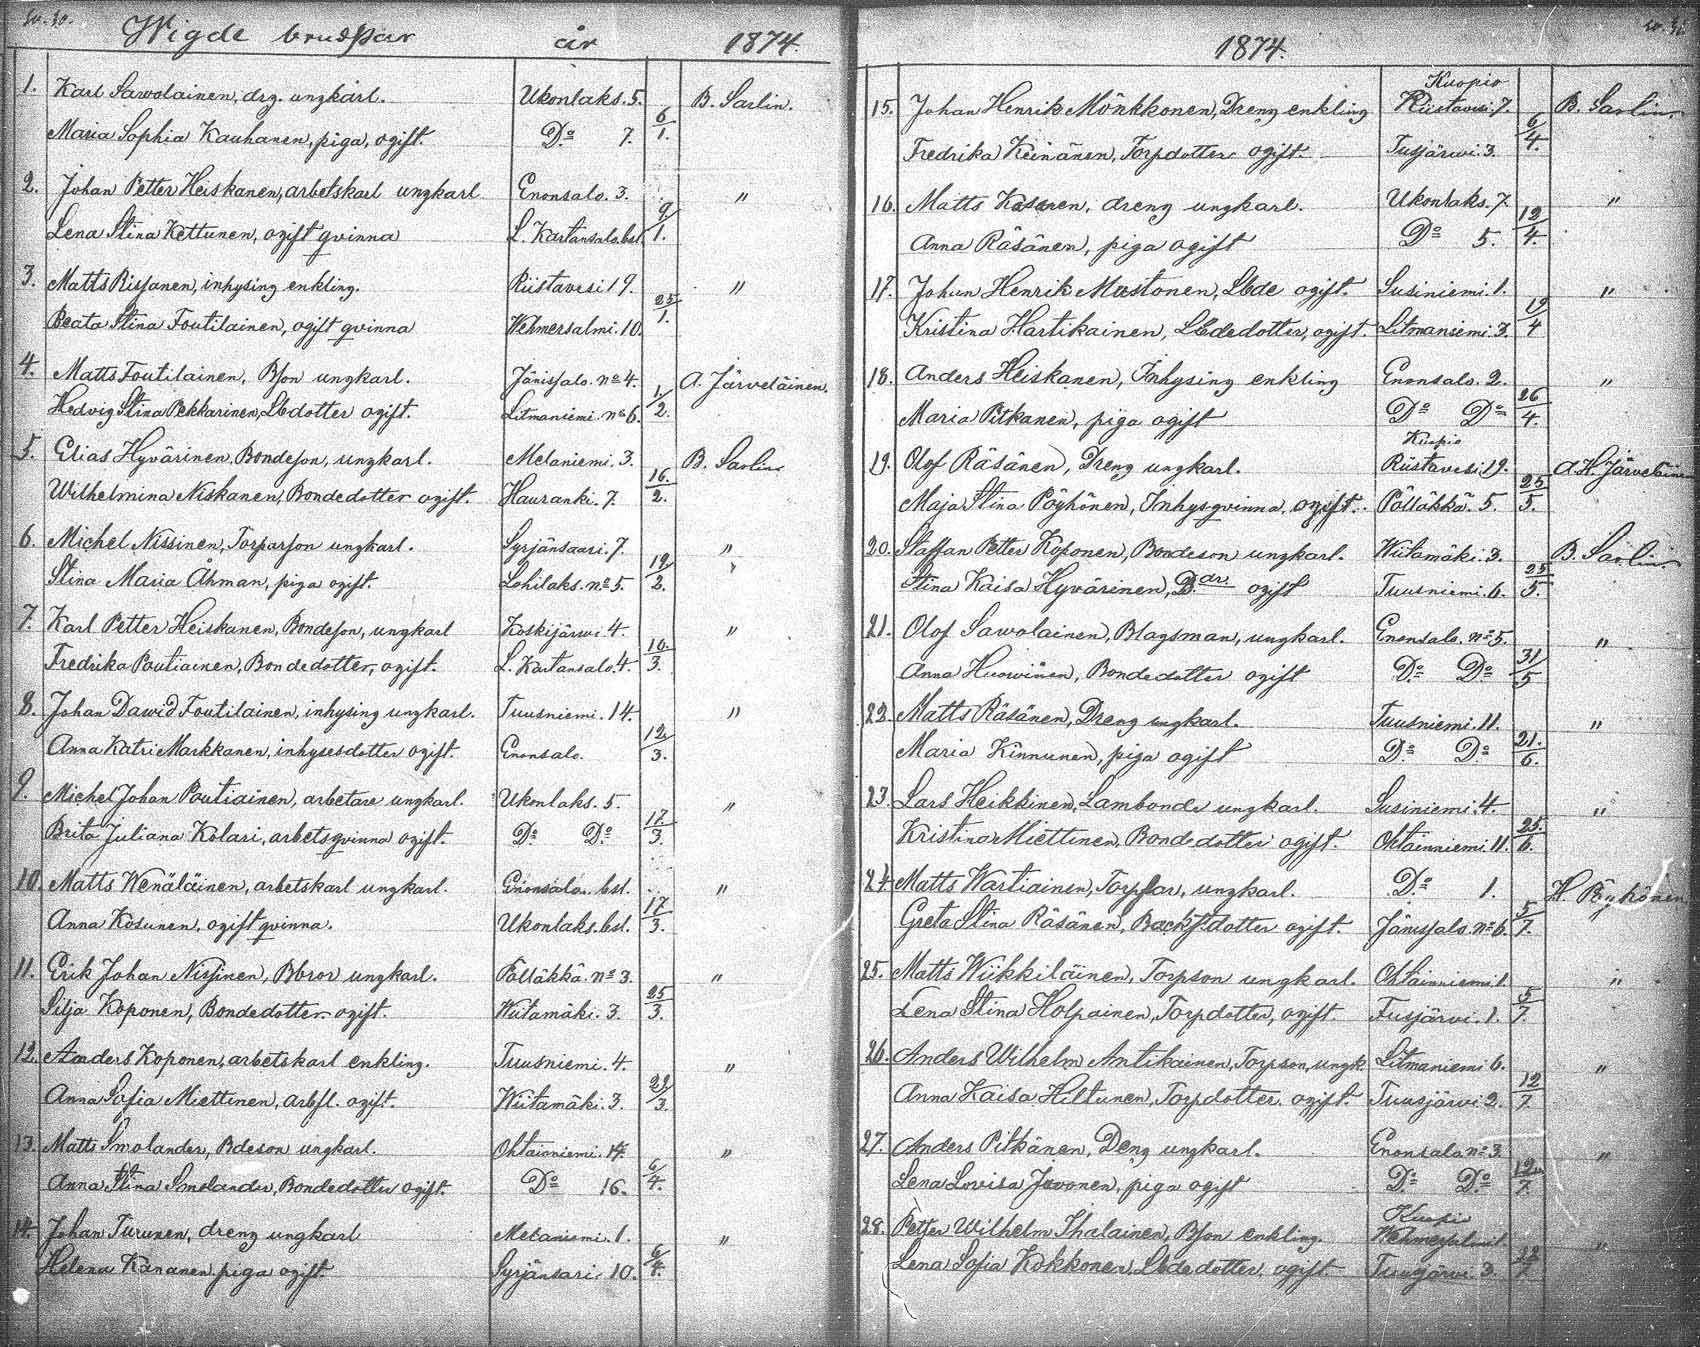 Wigde brudpar år 1874.
1. Karl Sawolainen, drg. ungkarl. Ukonlaks. 5. 6/1. B. Sarlin.
Maria Sophia Kauhanen, piga, ogift. Do 7.
2. Johan Petter Heiskanen, arbetskarl ungkarl Enonsalo. 3. 9/1. "
Lena Stina Kettunen, ogift qvinna L. Kartansalo. bst.
3. Matts Rissanen, inhysing enkling. Riistavesi 19. 25/1. "
Beata Stina Toutilainen, ogift qvinna Wehmersalmi. 10.
4. Matts Toutilainen, Bson ungkarl. Jänissalo. No 4. 1/2. A. Järveläinen.
Hedvig Stina Pekkarinen, Lbdotter ogift. Litmaniemi. No 6.
5. Elias Hyvärinen, Bondeson, ungkarl. Melaniemi. 3. 16/2. B. Sarlin
Wilhelmina Niskanen, Bondedotter ogift. Hauranki. 7
6. Michel Nissinen, Torparson ungkarl. Syrjänsaari. 7. 19/2. "
Stina Maria Åhman, piga ogift. Lohilaks. No 5.
7. Karl Petter Heiskanen, Bondeson, ungkarl Koskijärvi 4. 10/3. "
Fredrika Poutiainen, Bondedotter, ogift. L. Kartansalo. 4.
8. Johan Dawid Toutilainen, inhysing ungkarl. Tuusniemi. 14. 12/3. "
Anna Katri Markkanen, inhysesdotter ogift. Enonsalo.
9. Michel Johan Poutiainen, arbetare ungkarl. Ukonlaks. 5. 17/3. "
Brita Juliana Kolari, arbetsqvinna ogift. Do Do
10. Matts Wenäläinen, arbetskarl ungkarl. Enonsalo. bst. 17/3. "
Anna Kosunen, ogift qvinna. Ukonlaks. bst.
11. Erik Johan Nissinen, Bbror ungkarl. Pälläkkä. No 3. 25/3. "
Silja Koponen, Bondedotter ogift. Wiitamäki. 3.
12. Anders Koponen, arbetskarl enkling. Tuusniemi. 4. "
Anna Sofia Miettinen, arbfl. ogift. Wiitamäki. 3.
13. Matts Smolander, Bdeson ungkarl. Ohtainniemi. 14. 6/4. "
Anna Stina Smolander, Bondedotter ogift. Do 16.
14. Johan Turunen, dreng ungkarl Melaniemi. 1. 6/4. "
Helena Kananen, piga ogift. Syrjänsari. 10.
1874.
15. Johan Henrik Mönkkonen, Dreng enkling Kuopio Riistavesi. 7. 6/4. B. Sarlin.
Fredrika Keinänen, Torpdotter ogift. Tusjärwi. 3.
16. Matts Kosunen, dreng ungkarl. Ukonlaks. 7. 12/4. "
Anna Räsänen, piga ogift Do 5.
17. Johan Henrik Mustonen, Lbde ogift. Susiniemi. 1. 19/4 "
Kristina Hartikainen, Lbdedotter, ogift. Litmaniemi. 3.
18. Anders Heiskanen, Inhysing enkling Enonsalo. 2. 26/4. "
Maria Pitkanen, piga ogift Do Do
19. Olof Räsänen, Dreng ungkarl. Kuopio Riistavesi. 19. 25/5. A. H. Järveläinen
Maja Stina Pöyhönen, Inhysqvinna, ogift. Pälläkkä. 5
20. Staffan Petter Koponen, Bondeson ungkarl. Wiitamäki. 3. 25/5. B. Sarlin.
Stina Kaisa Hyvärinen, Bdr. ogift Tuusniemi. 6.
21. Olof Sawolainen, Blagsman, ungkarl. Enonsalo. No 5. 31/5 "
Anna Huowinen, Bondedotter ogift Do Do
22. Matts Räsänen, Dreng ungkarl. Tuusniemi. 11. 21/6. "
Maria Kinnunen, piga ogift Do Do
23. Lars Heikkinen, Lambonde ungkarl. Susiniemi. 4. 25/6. "
Kristina Miettinen, Bondedotter ogift. Ohtainniemi. 11.
24. Matts Wartiainen, Torpar, ungkarl. Do 1. 5/7. H. Pöyhönen
Greta Stina Räsänen, Backstdotter ogift. Jänissalo. No 6.
25. Matts Wiikkiläinen, Torpson ungkarl. Ohtainniemi 1. 5/7. "
Lena Stina Holpainen, Torpdotter, ogift. Tusjärvi. 1.
26. Anders Wilhelm Antikainen, Torpson, ungk Litmaniemi 6. 12/7. "
Anna Kaisa Hiltunen, Torpdotter. ogift. Tuusjärvi. 2.
27. Anders Pitkänen, Deng ungkarl. Enonsalo. No 3. 12/7. "
Lena Lovisa Juvonen, piga ogift Do Do
28. Petter Wilhelm Ihalainen, Bson enkling. Kuopio Wehmersalmi "
Lena Sofia Kokkonen. Lbdedotter. ogift Tuusjärvi. 3.